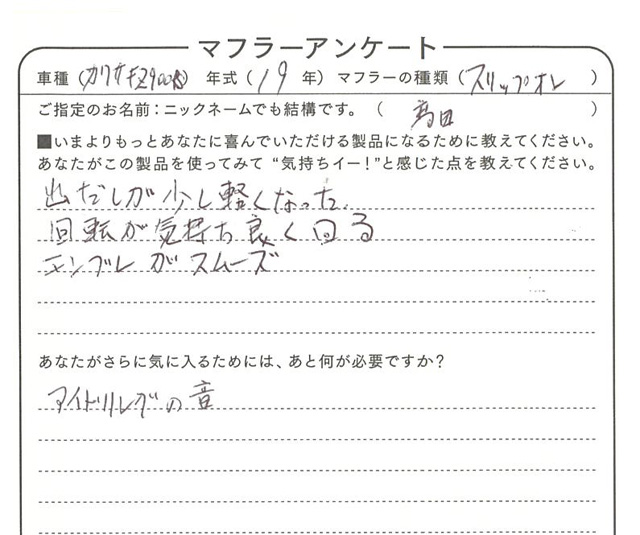 マフラーアンケート
車種(カワサキZ900RS) 年式(19年) マフラーの種類(スリップオン)
ご指定のお名前:ニックネームでも結構です。(高田)
■いまよりもっとあなたに喜んでいただける製品になるために教えてください。
あなたがこの製品を使ってみて“気持ちイー!”と感じた点を教えてください。
出だしが少し軽くなった
回転が気持ち良く回る
エンブレがスムーズ
あなたがさらに気に入るためには、あと何が必要ですか?
アイドリングの音